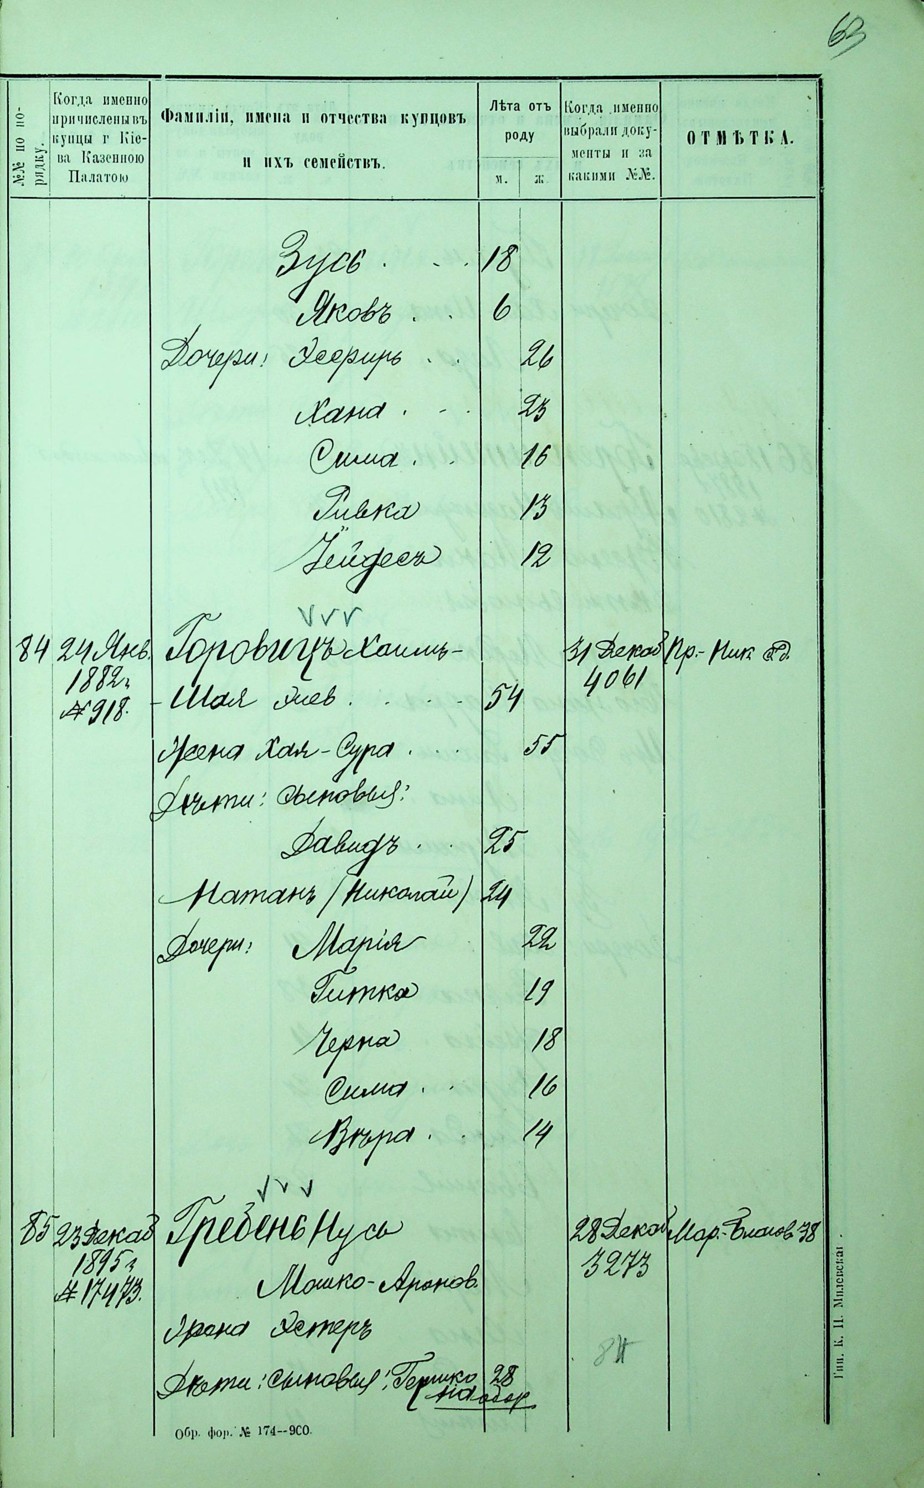 63
№№ по по-
рядку.
Когда именно
причислены въ
купцы г Кіе-
ва Казенною
Палатою
Фамиліи, имена и отчества купцовъ
и ихъ семействъ.
Лѣта отъ
роду
м. ж.
Когда именно
выбрали доку-
менты и за
какими №№.
ОТМѢТКА.
Зусь . . . 18
Яковъ . . 6
Дочери: Эсфирь . . 26
Хана . . . 23
Сима . . 16
Ривка 13
Нейдесъ 12
84 24 Янв. Горовицъ Хаимъ- 31 Декаб Пр.-Ник
1882 г 4061
№ 918. -Шая Элев . . . . 54
Жена Хая-Сура . . 55
Дѣти: сыновья:
Давидъ . . 25
Натанъ (Николай) 24
Дочери: Марія 22
Гитка 19
Черна 18
Сима . . 16
Вѣра . . 14
85 23 Декаб Гребень Нусь 28 Декаб Мар.-Благов 38
1895 г 3273
№ 17473. Мошко-Аронов.
Жена Эстеръ
84
Дѣти: сыновья: Гершко 28
на обор
Обр. фор. № 174--900.
Тип. К. Н. Милевскаг.